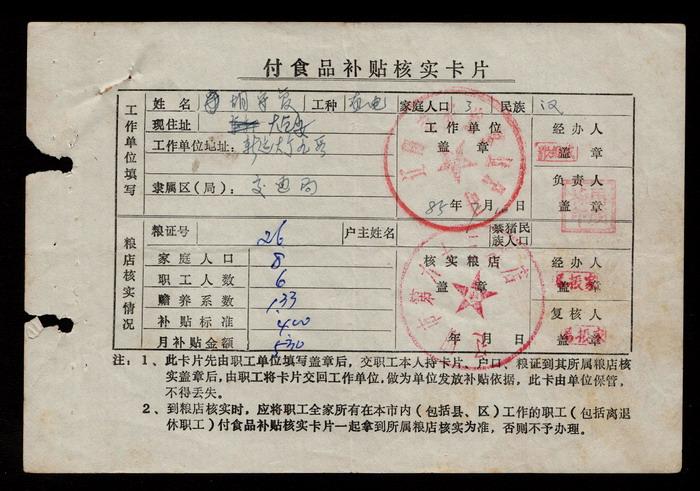 付食品补贴核实卡片
工作单位填写
姓名 工种 家庭人口 3 民族 汉
现住址
工作单位地址：
隶属区（局）： 交通局
工作单位 盖章
85 年 月 日
经办人 盖章
负责人 盖章
粮店核实情况
粮证号 26 户主姓名 禁猪民族人口
家庭人口 8
职工人数 6
赡养系数 1.33
补贴标准 4.00
月补贴金额 5.30
核实粮店 盖章
年 月 日
经办人 盖章
复核人 盖章
注：1、此卡片先由职工单位填写盖章后，交职工本人持卡片、户口、粮证到其所属粮店核
实盖章后，由职工将卡片交回工作单位，做为单位发放补贴依据，此卡由单位保管，
不得丢失。
2、到粮店核实时，应将职工全家所有在本市内（包括县、区）工作的职工（包括离退
休职工）付食品补贴核实卡片一起拿到所属粮店核实为准，否则不予办理。